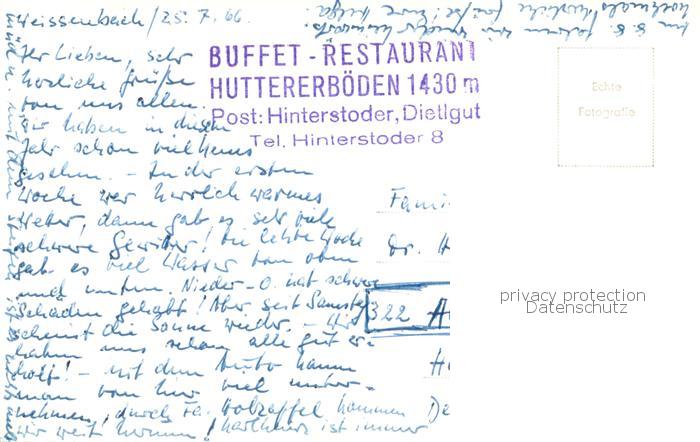 Weissenbach / 25. 7. 66.
Ihr Lieben, sehr
herzliche Grüße
von uns allen.
Wir haben in diesem
Jahr schon viel neues
gesehen. - In der ersten
Woche war herrlich warmes
Wetter, dann gab es sehr viele
schwere Gewitter! Die letzte Woche
gab es viel Wasser von oben
und unten. Nieder-Ö. hat schwere
Schäden gehabt! Aber seit Samstag
scheint die Sonne wieder. - Wir
haben uns schon alle gut er-
holt! - mit dem Auto kann
man von hier viel unter-
nehmen, durch Fa. Holzapfel kommen
wir weit herum! ist immer
BUFFET - RESTAURANT
HUTTERERBÖDEN 1430 m
Post: Hinterstoder, Dietlgut
Tel. Hinterstoder 8
Echte
Fotografie
Fami
Dr. H
322 H
H
De
privacy protection
Datenschutz